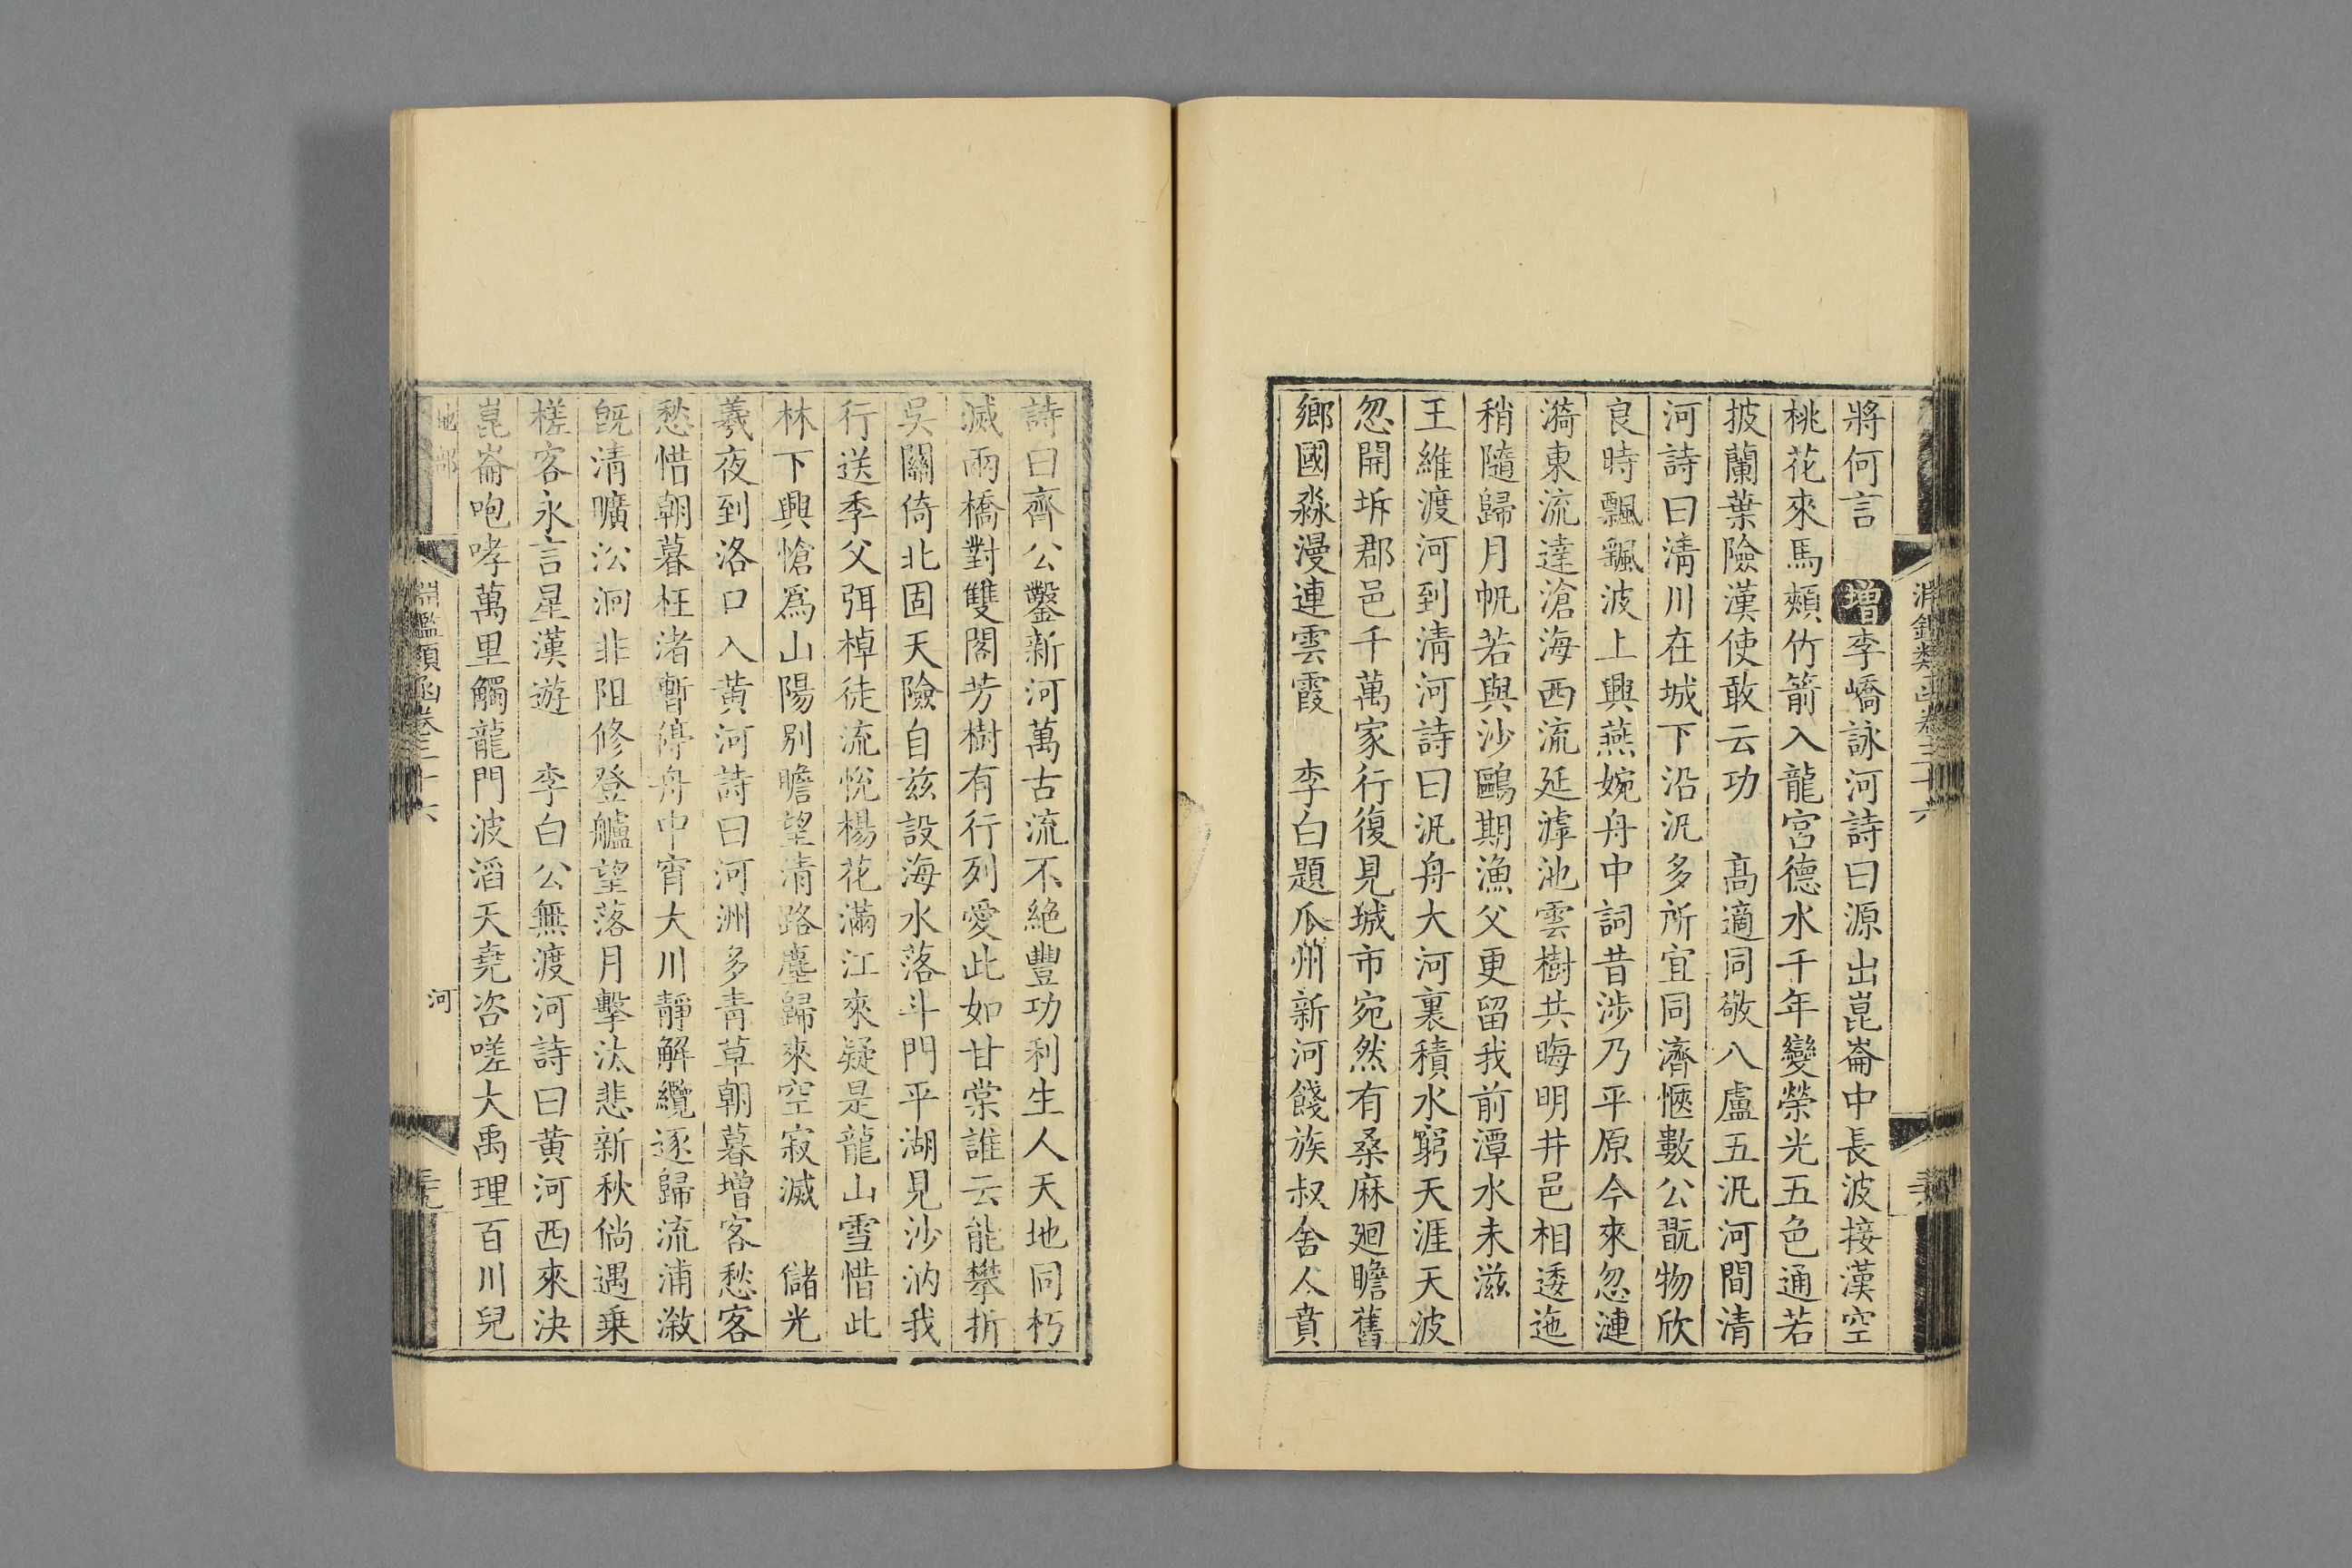 淵鑑類函卷三十六
將何言 增 李嶠詠河詩曰源出崑崙中長波接漢空
桃花來馬頰竹箭入龍宮德水千年變榮光五色通若
披蘭葉險漢使敢云功 高適同敬八盧五汎河間清
河詩曰清川在城下沿汎多所宜同濟愜數公翫物欣
良時飄飄波上興燕婉舟中詞昔涉乃平原今來忽漣
漪東流達滄海西流延滹池雲樹共晦明井邑相逶迤
稍隨歸月帆若與沙鷗期漁父更留我前潭水未滋
王維渡河到清河詩曰汎舟大河裏積水窮天涯天波
忽開坼郡邑千萬家行復見城市宛然有桑麻廻瞻舊
鄉國淼漫連雲霞 李白題瓜州新河餞族叔舍人賁
詩曰齊公鑿新河萬古流不絕豐功利生人天地同朽
滅兩橋對雙閣芳樹有行列愛此如甘棠誰云能攀折
吳關倚北固天險自茲設海水落斗門平湖見沙汭我
行送季父弭棹徒流悅楊花滿江來疑是龍山雪惜此
林下興愴爲山陽別瞻望清路塵歸來空寂滅 儲光
羲夜到洛口入黃河詩曰河洲多青草朝暮增客愁客
愁惜朝暮枉渚暫停舟中宵大川靜解纜逐歸流浦漵
旣清曠沿洄非阻修登艫望落月擊汰悲新秋倘遇乗
槎客永言星漢遊 李白公無渡河詩曰黃河西來決
崑崙咆哮萬里觸龍門波滔天堯咨嗟大禹理百川兒
地部 淵鑑類函卷三十六 河